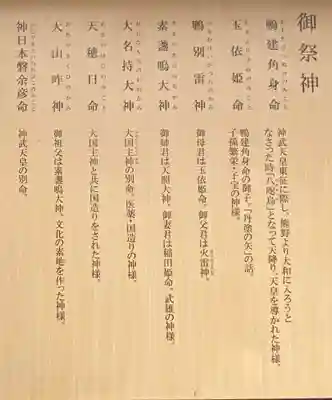 御祭神
鴨建角身命
神武天皇東征に際し、熊野より大和に入ろうと
なさった時「八咫烏」となって天降り、天皇を導かれた神様。
玉依姫命
鴨建角身命の御子。「丹塗の矢」の話。
子孫繁栄・子宝の神様。
鴨別雷神
御母君は玉依姫命。御父君は火雷神。
素盞嗚大神
御姉君は天照大神、御妻君は稲田姫命。武雄の神様。
大名持大神
大国主神の別命。医薬・国造りの神様。
天穂日命
大国主神と共に国造りをされた神様。
大山咋神
御祖父は素盞嗚大神、文化の素地を作った神様。
神日本磐余彦命
神武天皇の別命。